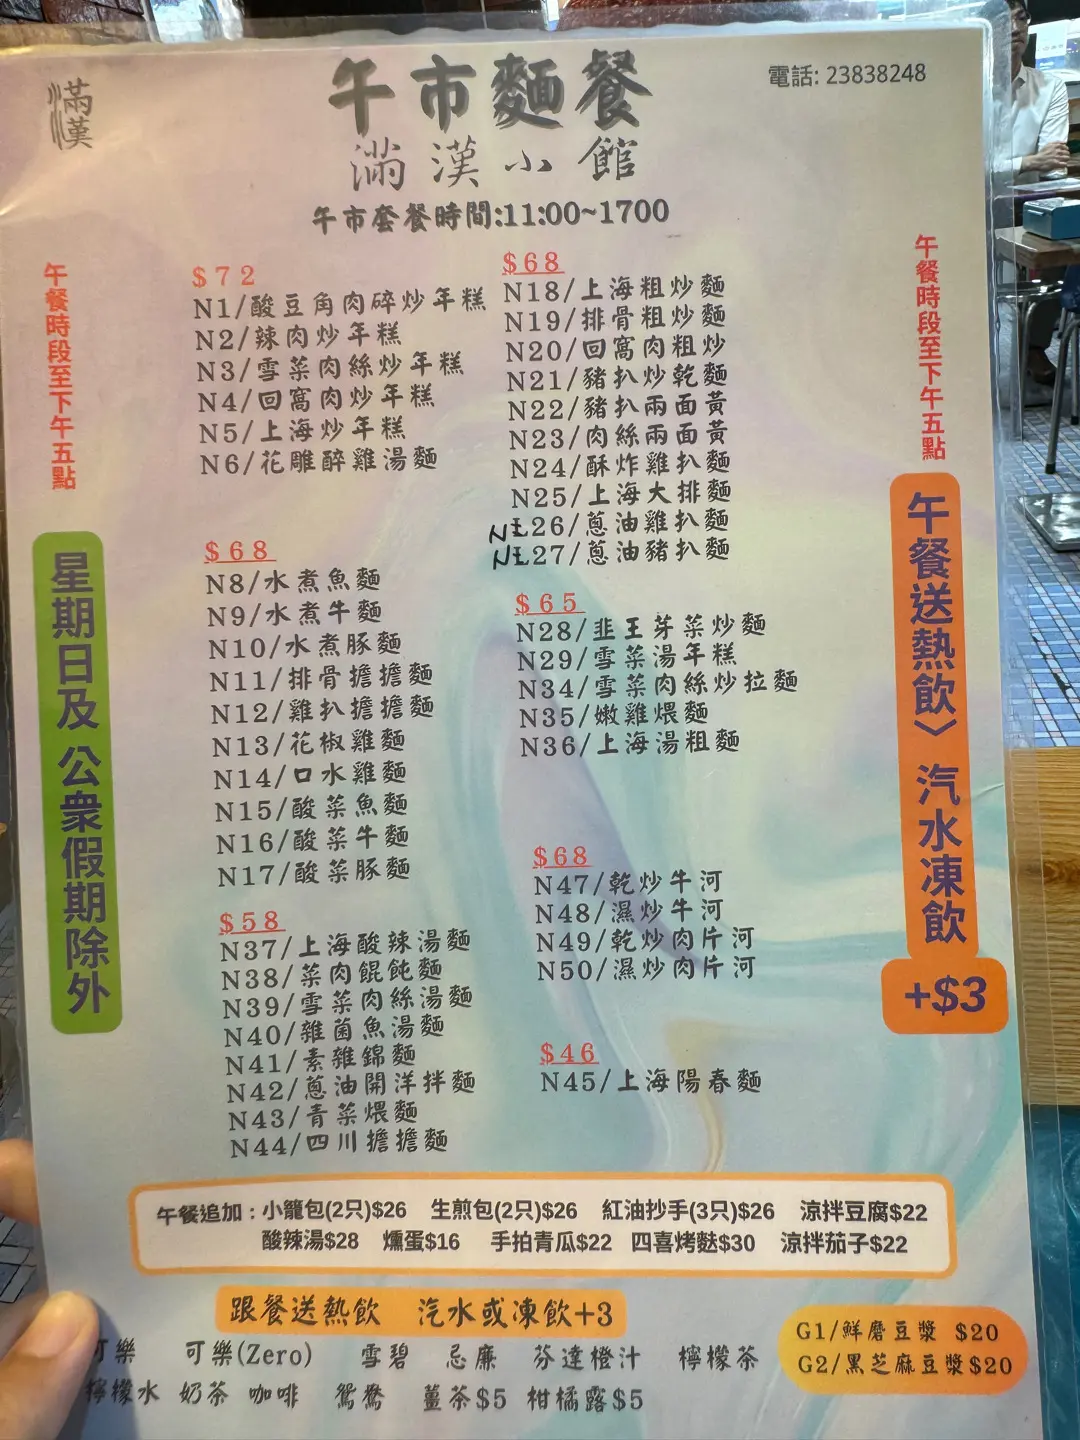 滿漢
午市麵餐
電話: 23838248
滿漢小館
午市套餐時間:11:00~1700
午餐時段至下午五點
星期日及 公眾假期除外
$72
N1/酸豆角肉碎炒年糕
N2/辣肉炒年糕
N3/雪菜肉絲炒年糕
N4/回窩肉炒年糕
N5/上海炒年糕
N6/花雕醉雞湯麵
$68
N8/水煮魚麵
N9/水煮牛麵
N10/水煮豚麵
N11/排骨擔擔麵
N12/雞扒擔擔麵
N13/花椒雞麵
N14/口水雞麵
N15/酸菜魚麵
N16/酸菜牛麵
N17/酸菜豚麵
$58
N37/上海酸辣湯麵
N38/菜肉餛飩麵
N39/雪菜肉絲湯麵
N40/雜菌魚湯麵
N41/素雜錦麵
N42/蔥油開洋拌麵
N43/青菜煨麵
N44/四川擔擔麵
$68
N18/上海粗炒麵
N19/排骨粗炒麵
N20/回窩肉粗炒
N21/豬扒炒乾麵
N22/豬扒兩面黃
N23/肉絲兩面黃
N24/酥炸雞扒麵
N25/上海大排麵
N26/蔥油雞扒麵
N27/蔥油豬扒麵
$65
N28/韭王芽菜炒麵
N29/雪菜湯年糕
N34/雪菜肉絲炒拉麵
N35/嫩雞煨麵
N36/上海湯粗麵
$68
N47/乾炒牛河
N48/濕炒牛河
N49/乾炒肉片河
N50/濕炒肉片河
$46
N45/上海陽春麵
午餐時段至下午五點
午餐送熱飲〉 汽水凍飲
+$3
午餐追加：小籠包(2只)$26 生煎包(2只)$26 紅油抄手(3只)$26 涼拌豆腐$22
酸辣湯$28 燻蛋$16 手拍青瓜$22 四喜烤麩$30 涼拌茄子$22
跟餐送熱飲 汽水或凍飲+3
可樂 可樂(Zero) 雪碧 忌廉 芬達橙汁 檸檬茶
檸檬水 奶茶 咖啡 鴛鴦 薑茶$5 柑橘露$5
G1/鮮磨豆漿 $20
G2/黑芝麻豆漿$20